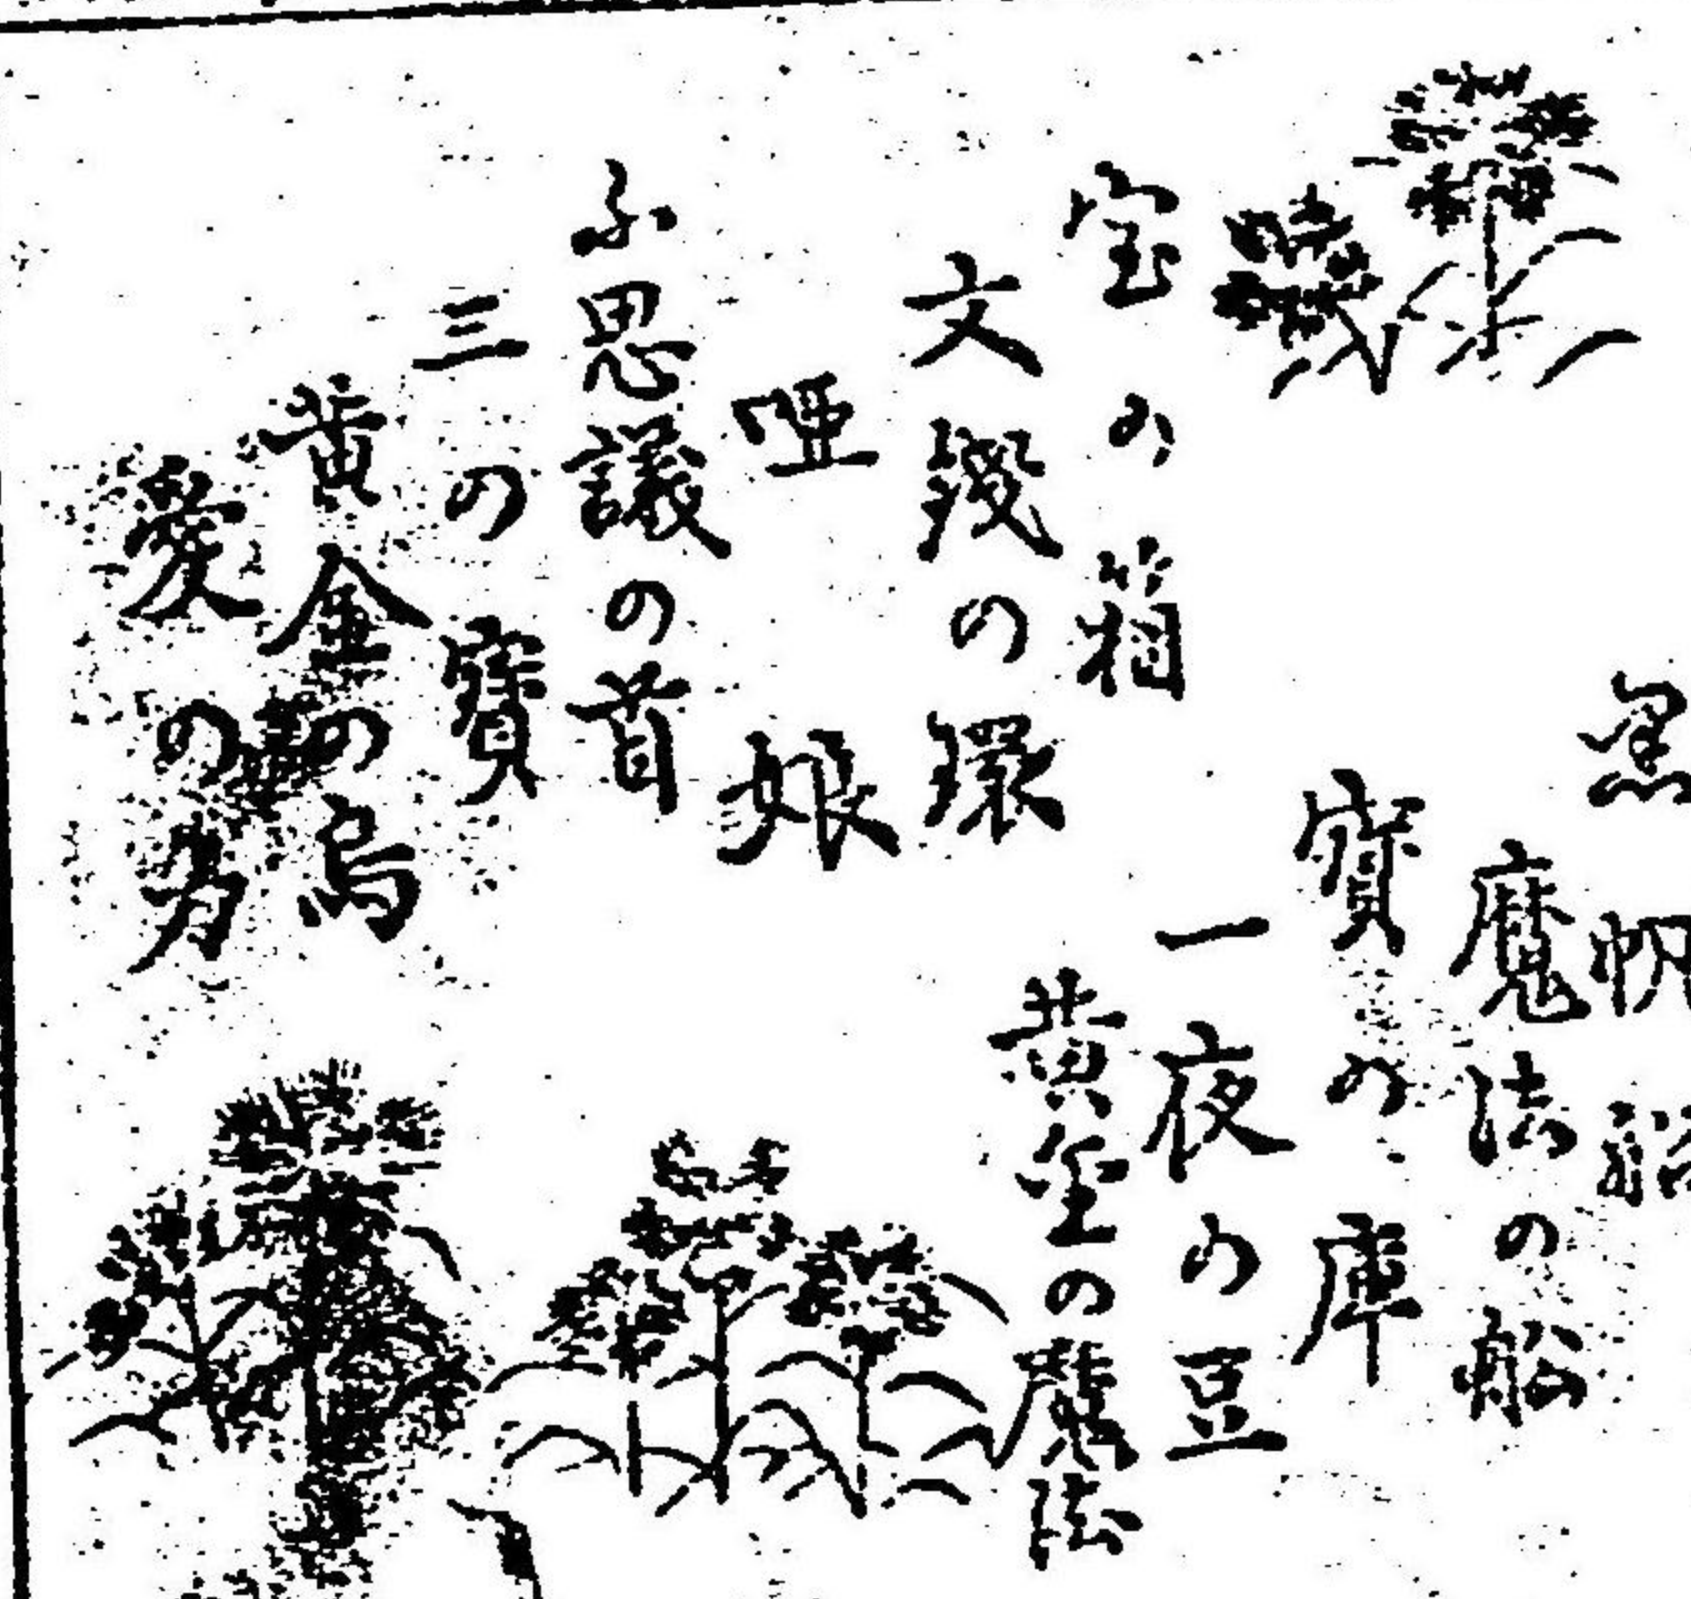 黒帆船
魔法の船
寶の庫
一夜の豆
黄金の魔法
宝の箱
文の環
唖娘
不思議の首
三の寶
黄金の
愛の力